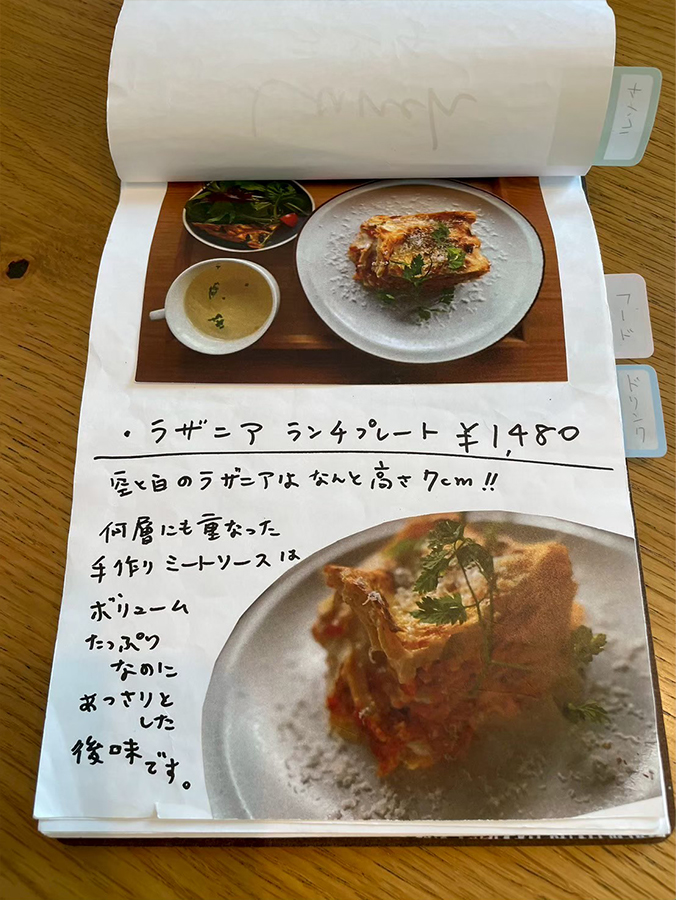 ・ラザニア ランチプレート ¥1,480
空と白のラザニアは なんと高さ7cm!!
何層にも重なった
手作りミートソースは
ボリューム
たっぷり
なのに
あっさりと
した
後味です。
フード
ドリンク